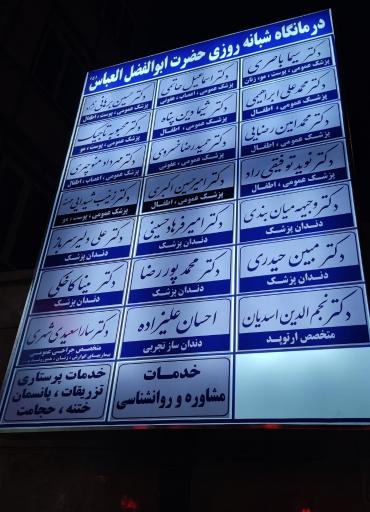 درمانگاه شبانه روزی حضرت ابوالفضل العباس (ع)
دکتر سیما باصری
پزشک عمومی ، پوست ، مو، زنان
دکتر اسماعیل حاتمی
پزشک عمومی ، اعصاب ، عفونی
دکتر حسین
پزشک عمومی ، پوست ، اطفال
دکتر محمد علی ابراهیمی
پزشک عمومی ، اطفال
دکتر شیما دین پناه
پزشک عمومی ، اطفال
دکتر محبوبه
پزشک عمومی ، پوست ، مو
دکتر محمد امین رضایی
پزشک عمومی ، اطفال
دکتر حمید رضا خسروی
پزشک عمومی ، عفونی
دکتر مهرداد منوچهری
پزشک عمومی ، اعصاب ، اطفال
دکتر نوید توفیقی راد
پزشک عمومی ، اطفال
دکتر امیر حسین اکبری
پزشک عمومی ، اطفال
دکتر
پزشک عمومی ، پوست ، مو
دکتر وجیهه میان بندی
دندان پزشک
دکتر امیر فرهاد حسینی
دندان پزشک
دکتر علی دلیر سرباز
دندان پزشک
دکتر مبین حیدری
دندان پزشک
دکتر محمد پور رضا
دندان پزشک
دکتر مینا کاخکی
دندان پزشک
دکتر نجم الدین اسدیان
متخصص ارتوپد
احسان علیزاده
دندان ساز تجربی
دکتر سارا سعیدی
متخصص جراحی عمومی
خدمات
مشاوره و روانشناسی
خدمات پرستاری
تزریقات ، پانسمان
ختنه ، حجامت